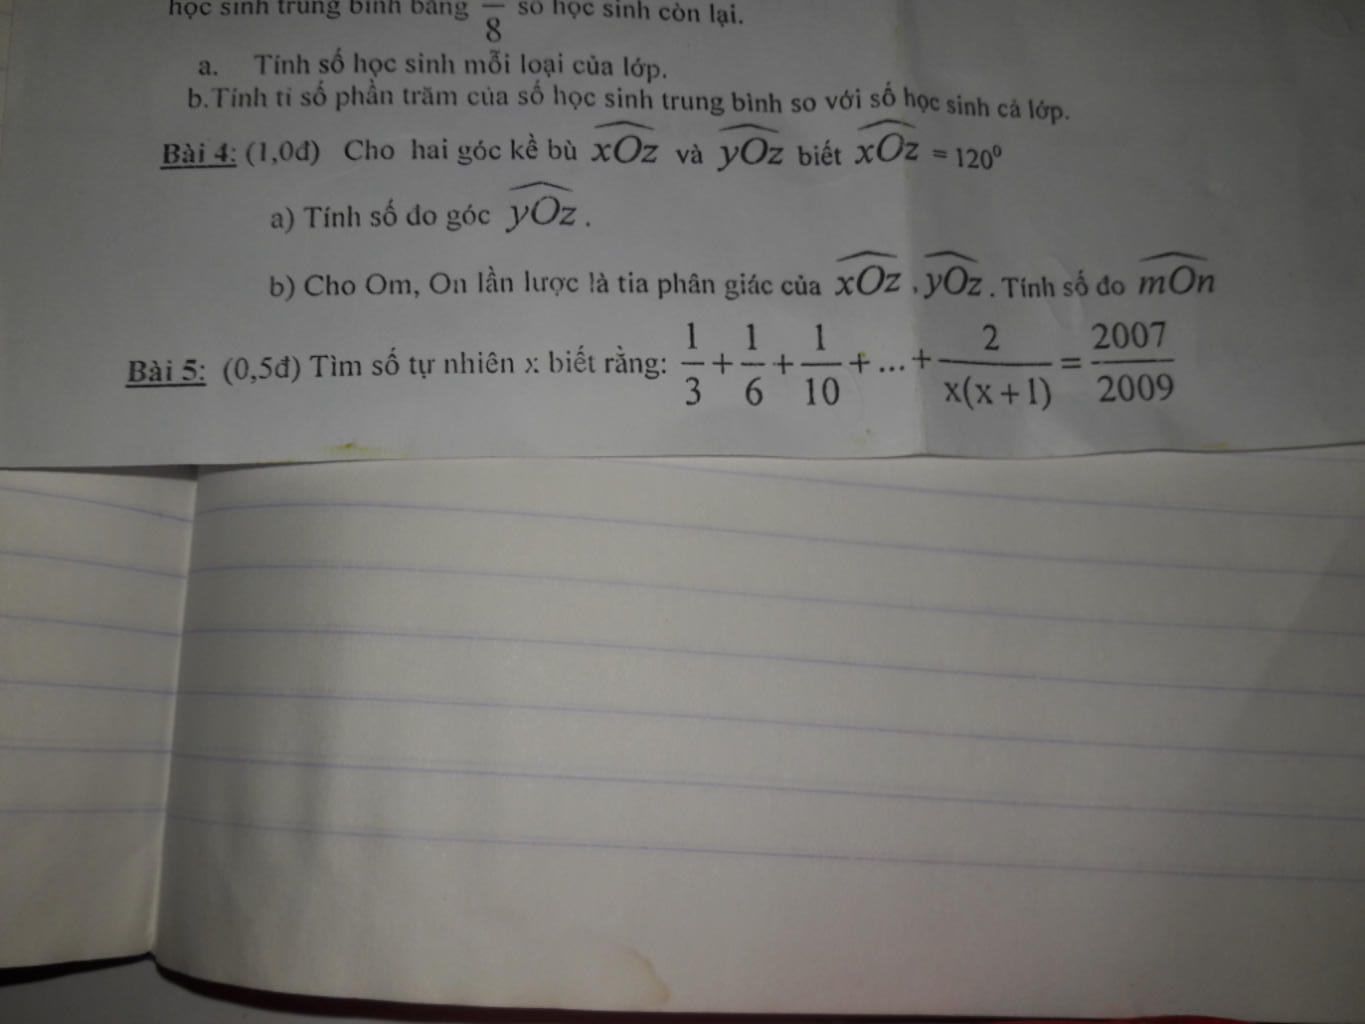 học sinh trung bình bằng /8 số học sinh còn lại.
a. Tính số học sinh mỗi loại của lớp.
b.Tính tỉ số phần trăm của số học sinh trung bình so với số học sinh cả lớp.
Bài 4: (1,0đ) Cho hai góc kề bù xOz và yOz biết xOz = 120⁰
a) Tính số đo góc yOz .
b) Cho Om, On lần lược là tia phân giác của xOz , yOz . Tính số đo mOn
Bài 5: (0,5đ) Tìm số tự nhiên x biết rằng: 1/3 + 1/6 + 1/10 + ... + 2/x(x+1) = 2007/2009